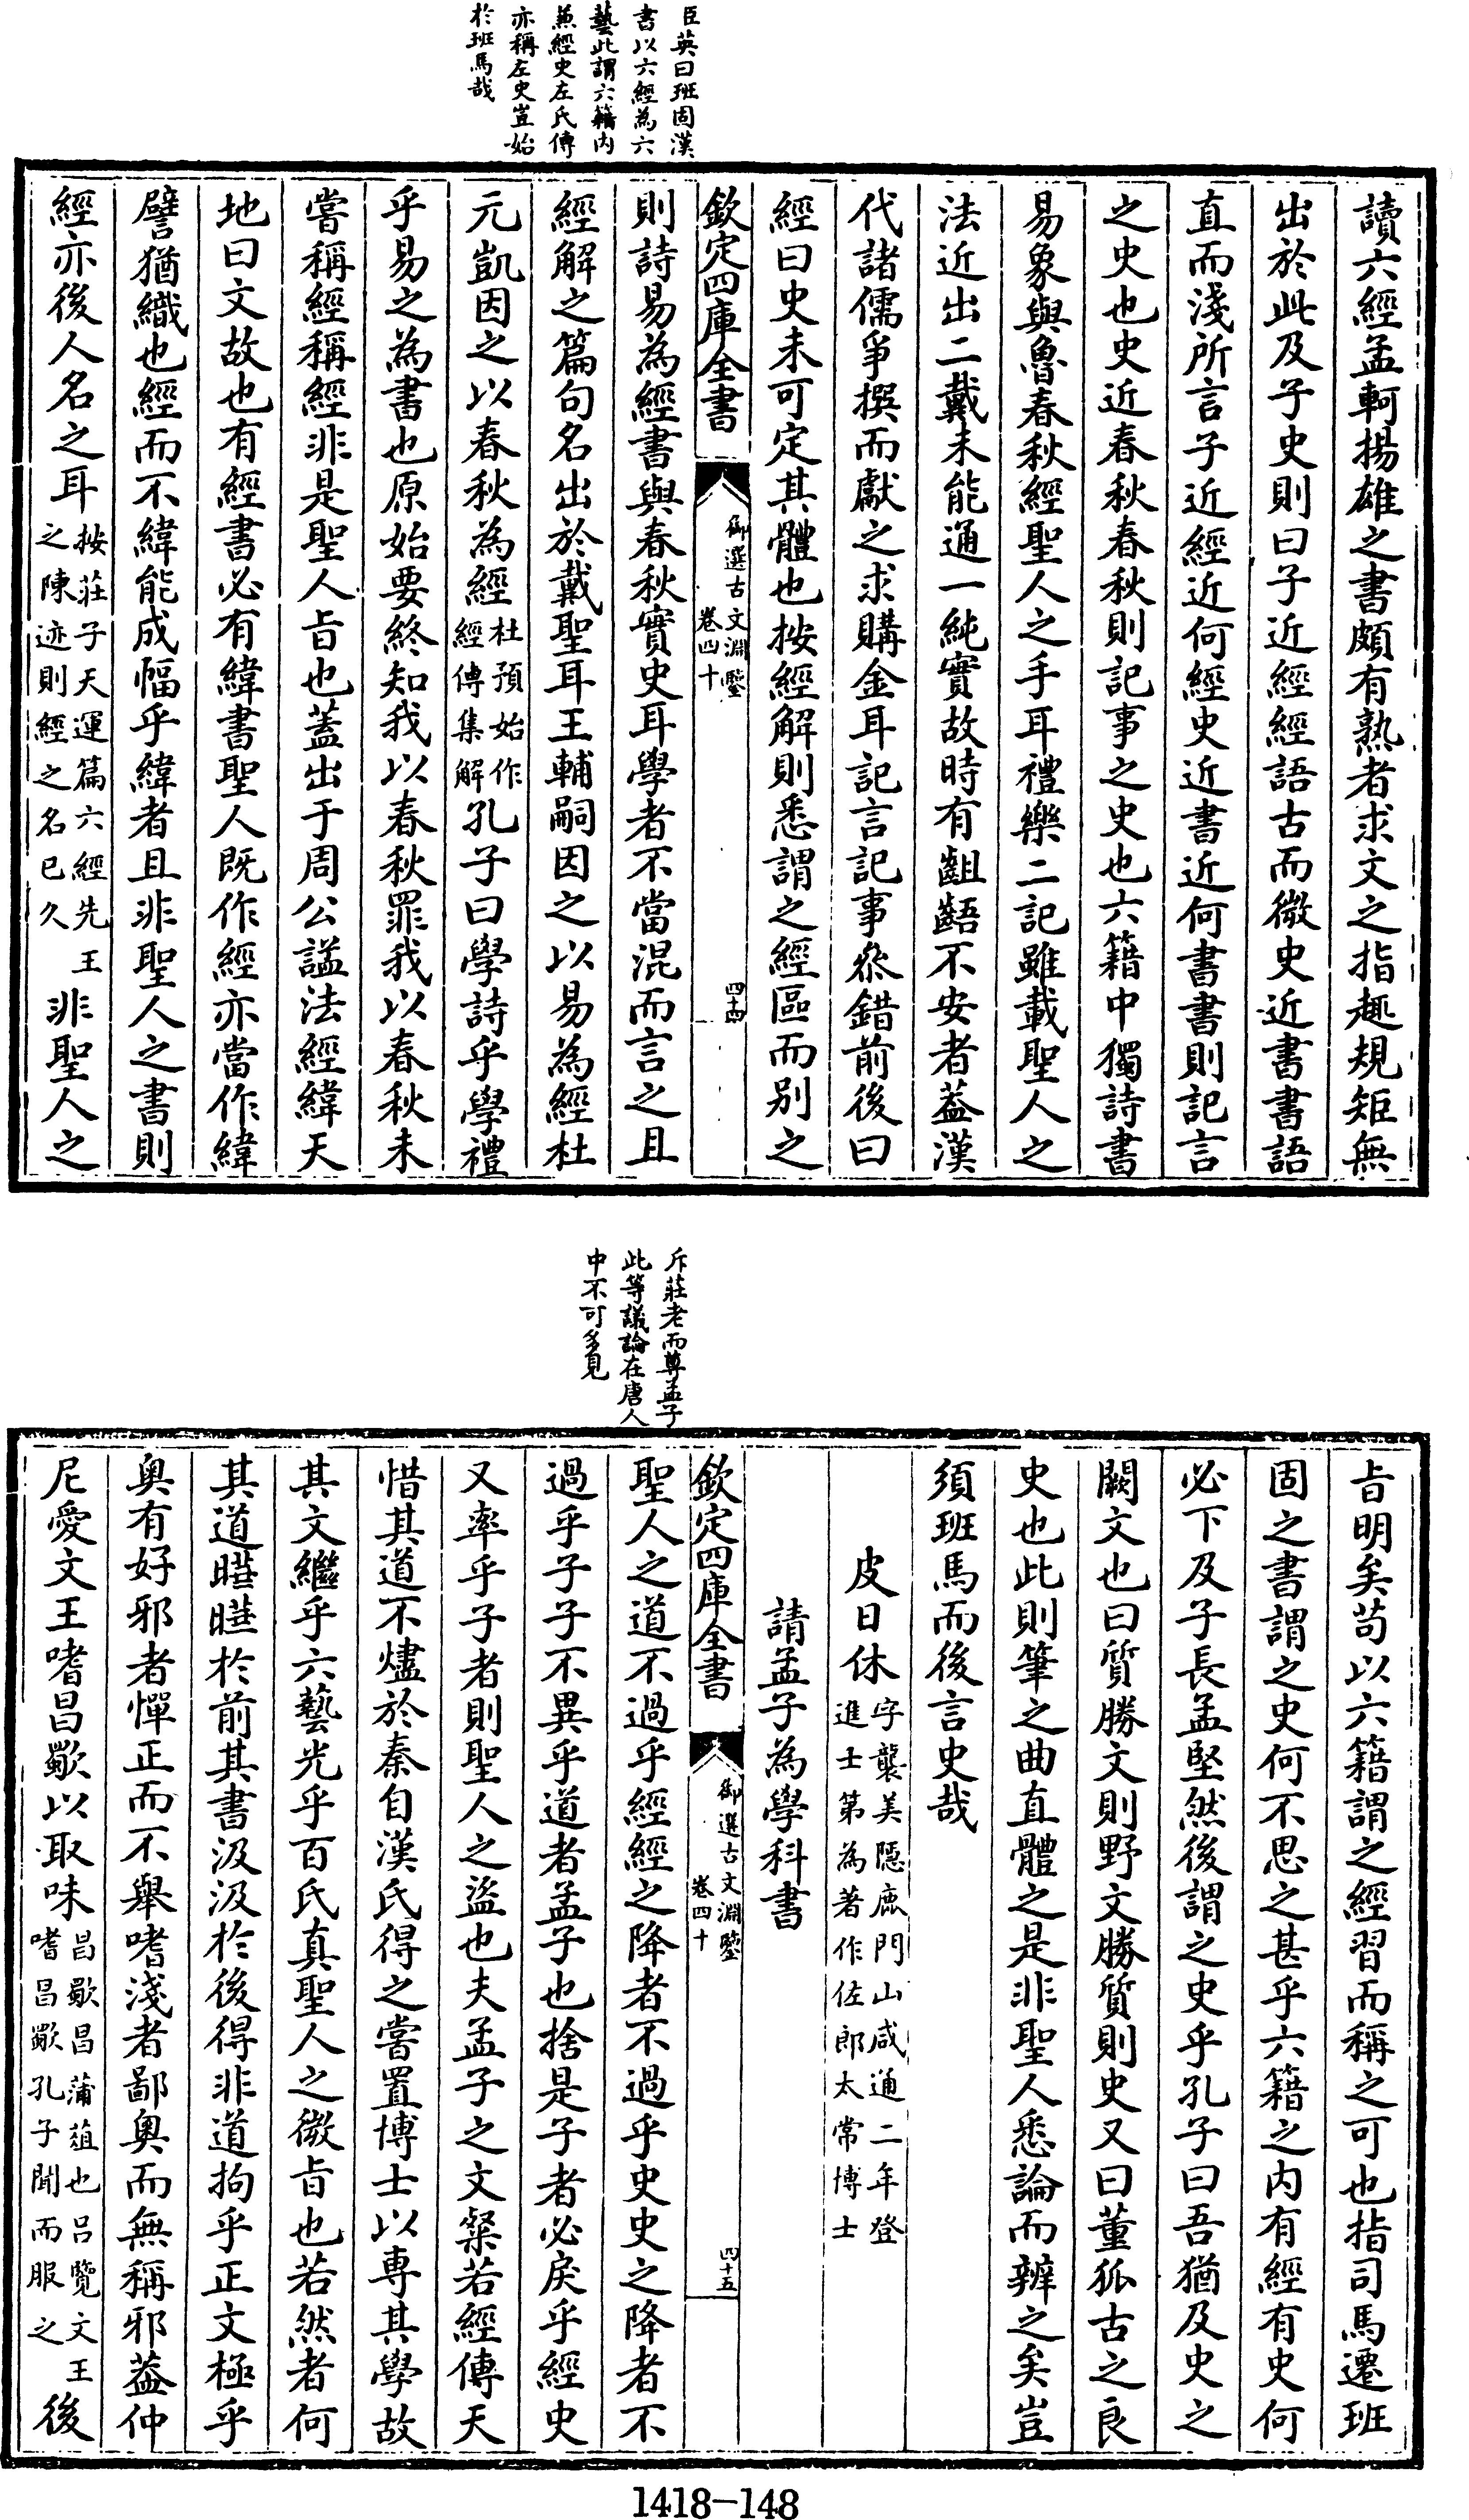 臣英曰班固漢
書以六經為六
藝此謂六籍內
兼經史左氏傳
亦稱左史豈始
於班馬哉
讀六經孟軻揚雄之書頗有熟者求文之指趣規矩無
出於此及子史則曰子近經經語古而微史近書書語
直而淺所言子近經近何經史近書近何書書則記言
之史也史近春秋春秋則記事之史也六籍中獨詩書
易象與魯春秋經聖人之手耳禮樂二記雖載聖人之
法近出二戴未能通一純實故時有齟齬不安者蓋漢
代諸儒爭撰而獻之求購金耳記言記事叅錯前後曰
經曰史未可定其體也按經解則悉謂之經區而别之
欽定四庫全書
御選古文淵鑒
卷四十
四十四
則詩易為經書與春秋實史耳學者不當混而言之且
經解之篇句名出於戴聖耳王輔嗣因之以易為經杜
元凱因之以春秋為經杜預始作經傳集解孔子曰學詩乎學禮
乎易之為書也原始要終知我以春秋罪我以春秋未
嘗稱經稱經非是聖人旨也蓋出于周公謚法經緯天
地曰文故也有經書必有緯書聖人既作經亦當作緯
譬猶織也經而不緯能成幅乎緯者且非聖人之書則
經亦後人名之耳按莊子天運篇六經先王之陳迹則經之名已久非聖人之
斥莊老而尊孟子
此等議論在唐人
中不可多見
旨明矣苟以六籍謂之經習而稱之可也指司馬遷班
固之書謂之史何不思之甚乎六籍之内有經有史何
必下及子長孟堅然後謂之史乎孔子曰吾猶及史之
闕文也曰質勝文則野文勝質則史又曰董狐古之良
史也此則筆之曲直體之是非聖人悉論而辨之矣豈
須班馬而後言史哉
皮日休字襲美隱鹿門山咸通二年登進士第為著作佐郎太常博士
請孟子為學科書
欽定四庫全書
御選古文淵鑒
卷四十
四十五
聖人之道不過乎經經之降者不過乎史史之降者不
過乎子子不異乎道者孟子也捨是子者必戾乎經史
又率乎子者則聖人之盜也夫孟子之文粲若經傳天
惜其道不燼於秦自漢氏得之嘗置博士以專其學故
其文繼乎六藝光乎百氏真聖人之微旨也若然者何
其道曄曄於前其書汲汲於後得非道拘乎正文極乎
奥有好邪者憚正而不舉嗜淺者鄙奥而無稱邪蓋仲
尼愛文王嗜昌歜以取味昌歜昌蒲葅也呂覽文王嗜昌歜孔子聞而服之後
1418-148